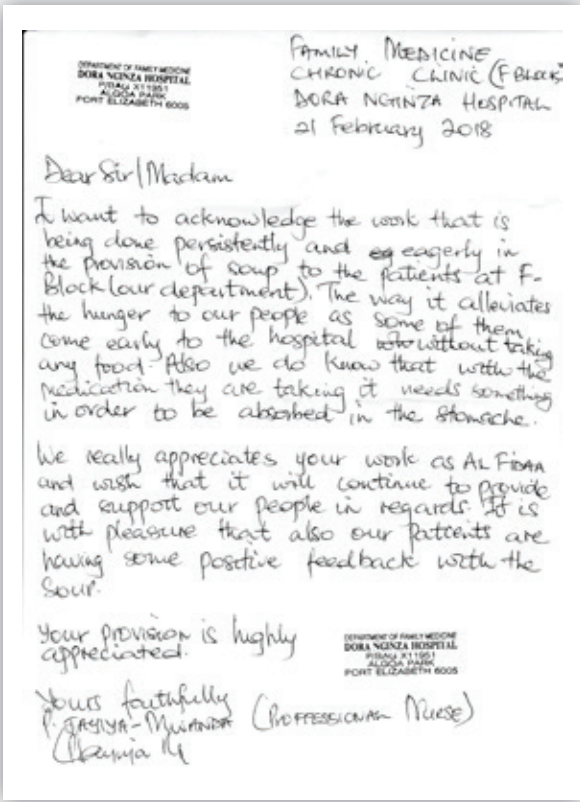 DEPARTMENT OF FAMILY MEDICINE
DORA NGINZA HOSPITAL
P/BAG X11951
ALGOA PARK
PORT ELIZABETH 6005
FAMILY MEDICINE
CHRONIC CLINIC (F BLOCK)
DORA NGINZA HOSPITAL
21 February 2018
Dear Sir/Madam
I want to acknowledge the work that is
being done persistently and eg eagerly in
the provision of soup to the patients at F-
Block (our department). The way it alleviates
the hunger to our people as some of them
come early to the hospital without taking
any food. Also we do know that with the
medication they are taking it needs something
in order to be absorbed in the stomache.
We really appreciates your work as AL FIDAA
and wish that it will continue to provide
and support our people in regards. It is
with pleasure that also our patients are
having some positive feedback with the
Soup.
Your provision is highly
appreciated.
DEPARTMENT OF FAMILY MEDICINE
DORA NGINZA HOSPITAL
P/BAG X11951
ALGOA PARK
PORT ELIZABETH 6005
Yours faithfully
P. JAYIYA-MWANDA (PROFFESSIONAL NURSE)